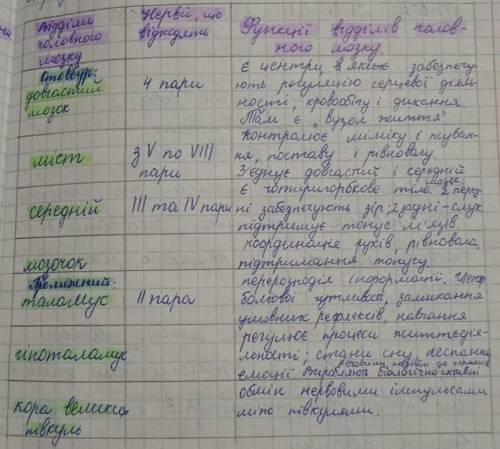 Відділи головного мозку
Нерви, що відходять
Функції відділів головного мозку.
Стовбур:
довгастий мозок
4 пари
Є центри, в яких забезпечу-
ють регуляцію серцевої діяль-
ності, кровообігу і дихання.
Там є "вузол життя"
міст
з V по VIII пари
контролює міміку і жуван-
ня, поставу і рівновагу
З'єднує довгастий і середній мозок.
середній
III та IV пари
є чотиригорбкове тіло. 2 перед-
ні забезпечують зір; 2 задні - слух
підтримує тонус м'язів
мозочок
координація рухів, рівновага,
підтримання тонусу.
Проміжний:
таламус
II пара
перерозподіл інформації. Центр
больової чутливості, замикання
умовних рефлексів, навчання
гіпоталамус
регулює процеси життєдія-
льності; стани сну, неспання
емоції Виробляють біологічно активні
речовини, подібні до гормонів
кора великих півкуль
обмін нервовими імпульсами
між півкулями.